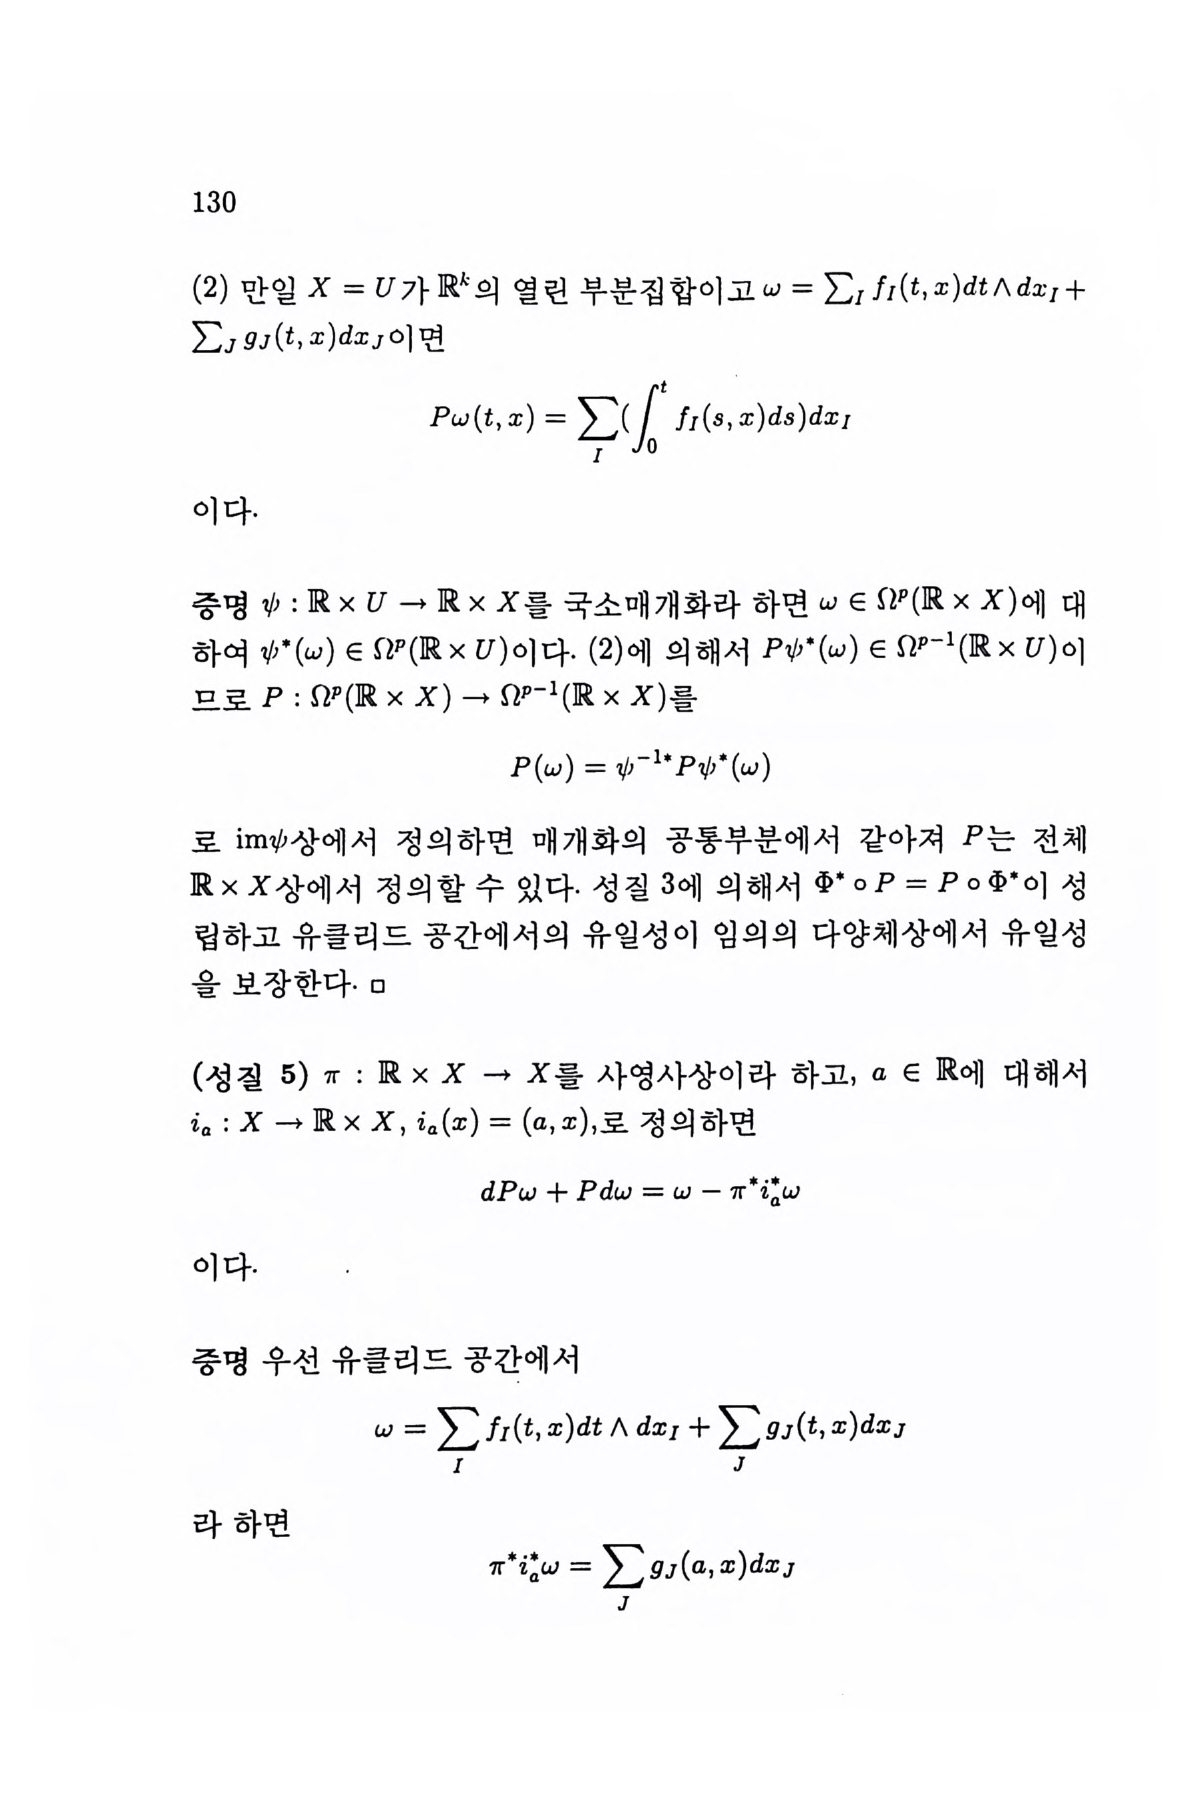 130
(2) 만일 X = U가 ℝᵏ의 열린 부분집합이고 ω = ∑_I f_I(t, x)dt ∧ dx_I +
∑_J g_J(t, x)dx_J이면
Pω(t, x) = ∑_I (∫₀ᵗ f_I(s, x)ds)dx_I
이다.
증명 ψ : ℝ × U → ℝ × X를 국소매개화라 하면 ω ∈ Ωᵖ(ℝ × X)에 대
하여 ψ*(ω) ∈ Ωᵖ(ℝ × U)이다. (2)에 의해서 Pψ*(ω) ∈ Ωᵖ⁻¹(ℝ × U)이
므로 P : Ωᵖ(ℝ × X) → Ωᵖ⁻¹(ℝ × X)를
P(ω) = ψ⁻¹*Pψ*(ω)
로 imψ상에서 정의하면 매개화의 공통부분에서 같아져 P는 전체
ℝ × X상에서 정의할 수 있다. 성질 3에 의해서 Φ* ∘ P = P ∘ Φ*이 성
립하고 유클리드 공간에서의 유일성이 임의의 다양체상에서 유일성
을 보장한다. □
(성질 5) π : ℝ × X → X를 사영사상이라 하고, a ∈ ℝ에 대해서
i_a : X → ℝ × X, i_a(x) = (a, x),로 정의하면
dPω + Pdω = ω − π*i_a*ω
이다.
증명 우선 유클리드 공간에서
ω = ∑_I f_I(t, x)dt ∧ dx_I + ∑_J g_J(t, x)dx_J
라 하면
π*i_a*ω = ∑_J g_J(a, x)dx_J